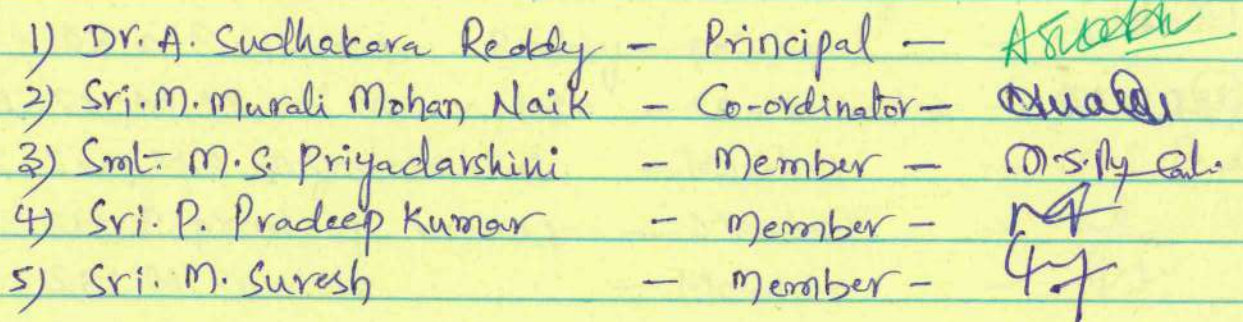 1) Dr. A. Sudhakara Reddy - Principal -
2) Sri. M. Murali Mohan Naik - Co-ordinator -
3) Smt. M.S. Priyadarshini - Member - M.S.
4) Sri. P. Pradeep Kumar - Member -
5) Sri. M. Suresh - Member -